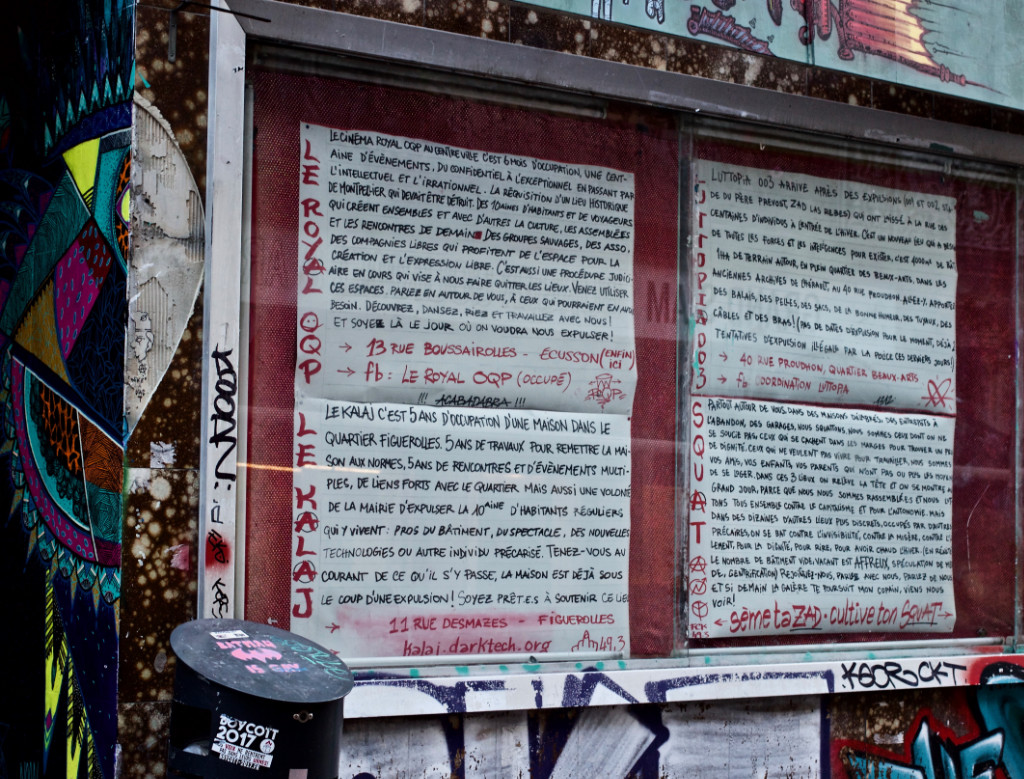 LE ROYAL OQP
LE CINÉMA ROYAL OQP AU CENTRE VILLE C'EST 6 MOIS D'OCCUPATION, UNE CENT-
AINE D'ÉVÈNEMENTS, DU CONFIDENTIEL À L'EXCEPTIONNEL EN PASSANT PAR
L'INTELLECTUEL ET L'IRRATIONNEL. LA RÉQUISITION D'UN LIEU HISTORIQUE
DE MONTPELLIER QUI DEVAIT ÊTRE DÉTRUIT. DES 10AINES D'HABITANTS ET DE VOYAGEURS
QUI CRÉENT ENSEMBLES ET AVEC D'AUTRES LA CULTURE, LES ASSEMBLÉES
ET LES RENCONTRES DE DEMAIN. DES GROUPES SAUVAGES, DES ASSO,
DES COMPAGNIES LIBRES QUI PROFITENT DE L'ESPACE POUR LA
CRÉATION ET L'EXPRESSION LIBRE. C'EST AUSSI UNE PROCÉDURE JUDICI-
AIRE EN COURS QUI VISE À NOUS FAIRE QUITTER LES LIEUX. VENEZ UTILISER
CES ESPACES. PARLEZ EN AUTOUR DE VOUS, À CEUX QUI POURRAIENT EN AVOIR
BESOIN. DÉCOUVREZ, DANSEZ, RIEZ ET TRAVAILLEZ AVEC NOUS!
ET SOYEZ LÀ LE JOUR OÙ ON VOUDRA NOUS EXPULSER!
→ 13 RUE BOUSSAIROLLES - ÉCUSSON (ENFIN ICI)
→ fb: LE ROYAL OQP (OCCUPÉ)
!!! ACABADABRA !!!
LE KALAJ
LE KALAJ C'EST 5 ANS D'OCCUPATION D'UNE MAISON DANS LE
QUARTIER FIGUEROLLES. 5 ANS DE TRAVAUX POUR REMETTRE LA MAI-
SON AUX NORMES, 5 ANS DE RENCONTRES ET D'ÉVÈNEMENTS MULTI-
PLES, DE LIENS FORTS AVEC LE QUARTIER MAIS AUSSI UNE VOLONTÉ
DE LA MAIRIE D'EXPULSER LA 10AINE D'HABITANTS RÉGULIERS
QUI Y VIVENT: PROS DU BÂTIMENT, DU SPECTACLE, DES NOUVELLES
TECHNOLOGIES OU AUTRE INDIVIDU PRÉCARISÉ. TENEZ-VOUS AU
COURANT DE CE QU'IL S'Y PASSE, LA MAISON EST DÉJÀ SOUS
LE COUP D'UNE EXPULSION! SOYEZ PRÊT.E.S À SOUTENIR CE LIEU
→ 11 RUE DESMAZES - FIGUEROLLES
kalaj.darktech.org
49.3
LUTTOPIA 003
LUTTOPIA 003 ARRIVE APRÈS DES EXPULSIONS (001 ET 002
DE DU PÈRE PRÉVOST, ZAD LAS REBES) QUI ONT LAISSÉ À LA RUE DES
CENTAINES D'INDIVIDUS À L'ENTRÉE DE L'HIVER. C'EST UN NOUVEAU LIEU QUI A BESOIN
DE TOUTES LES FORCES ET LES INTELLIGENCES POUR EXISTER, C'EST 4000M2 DE BÂ
1HA DE TERRAIN AUTOUR, EN PLEIN QUARTIER DES BEAUX-ARTS, DANS LES
ANCIENNES ARCHIVES DE L'HÉRAULT AU 40 RUE PROUDHON. APPORTE
DES BALAIS, DES PELLES, DES SACS, DE LA BONNE HUMEUR, DES TUYAUX, DES
CÂBLES ET DES BRAS! (PAS DE DATES D'EXPULSION POUR LE MOMENT, DÉJÀ
TENTATIVES D'EXPULSION ILLÉGALES PAR LA POLICE CES DERNIERS JOURS!)
→ 40 RUE PROUDHON, QUARTIER BEAUX-ARTS
→ fb COORDINATION LUTTOPIA
SQUAT
PARTOUT AUTOUR DE VOUS, DANS DES MAISONS DÉLABRÉES, DES ENTREPÔTS À
L'ABANDON, DES GARAGES, NOUS SQUATTONS. NOUS SOMMES CEUX DONT ON NE
SE SOUCIE PAS, CEUX QUI SE CACHENT DANS LES MARGES POUR TROUVER UN PEU
DE DIGNITÉ. CEUX QUI NE VEULENT PAS VIVRE POUR TRAVAILLER. NOUS SOMMES
VOS AMIS, VOS ENFANTS, VOS PARENTS QUI N'ONT PAS OU PLUS LES MOYENS
DE SE LOGER. DANS CES 3 LIEUX ON RELÈVE LA TÊTE ET ON SE MONTRE AU
GRAND JOUR PARCE QUE NOUS NOUS SOMMES RASSEMBLÉES ET NOUS LUT
TONS TOUS ENSEMBLE CONTRE LE CAPITALISME ET POUR L'AUTONOMIE. MAIS
DANS DES DIZAINES D'AUTRES LIEUX PLUS DISCRETS, OCCUPÉS PAR D'AUTRES
PRÉCAIRES, ON SE BAT CONTRE L'INVISIBILITÉ, CONTRE LA MISÈRE, CONTRE L'
LEMENT, POUR LA DIGNITÉ, POUR RIRE, POUR AVOIR CHAUD L'HIVER.
LE NOMBRE DE BÂTIMENT VIDE VACANT EST AFFREUX, SPÉCULATION DE
DE, GENTRIFICATION) REJOIGNEZ-NOUS, PARLEZ AVEC NOUS, PARLEZ DE NOUS
ET SI DEMAIN LA GALÈRE TE POURSUIT MON COPAIN, VIENS NOUS
VOIR!
← sème ta ZAD. cultive ton SQUAT →
KSOROCKT
BOYCOTT
2017